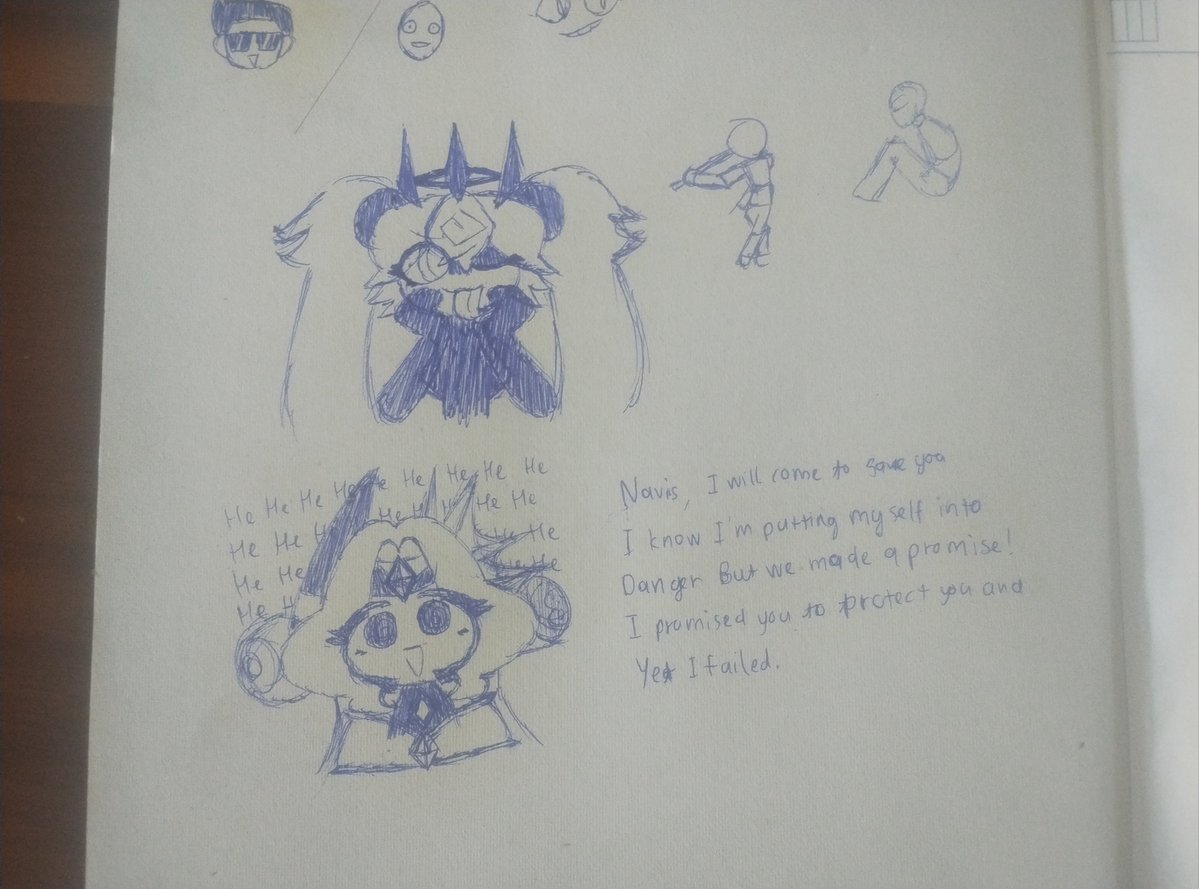 He He He He He He He He He
He He He He He He He
He He He He
He H
Navis, I will come to save you
I know I'm putting myself into
Danger But we made a promise!
I promised you to protect you and
Yet I failed.